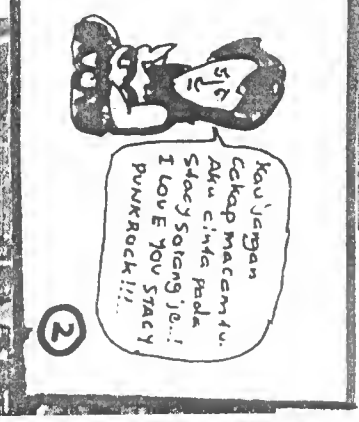 Kau jangan
Cakap macam tu.
Aku cinta pada
Stacy sorang je..!
I LOVE YOU STACY
PUNKROCK!!!...
2